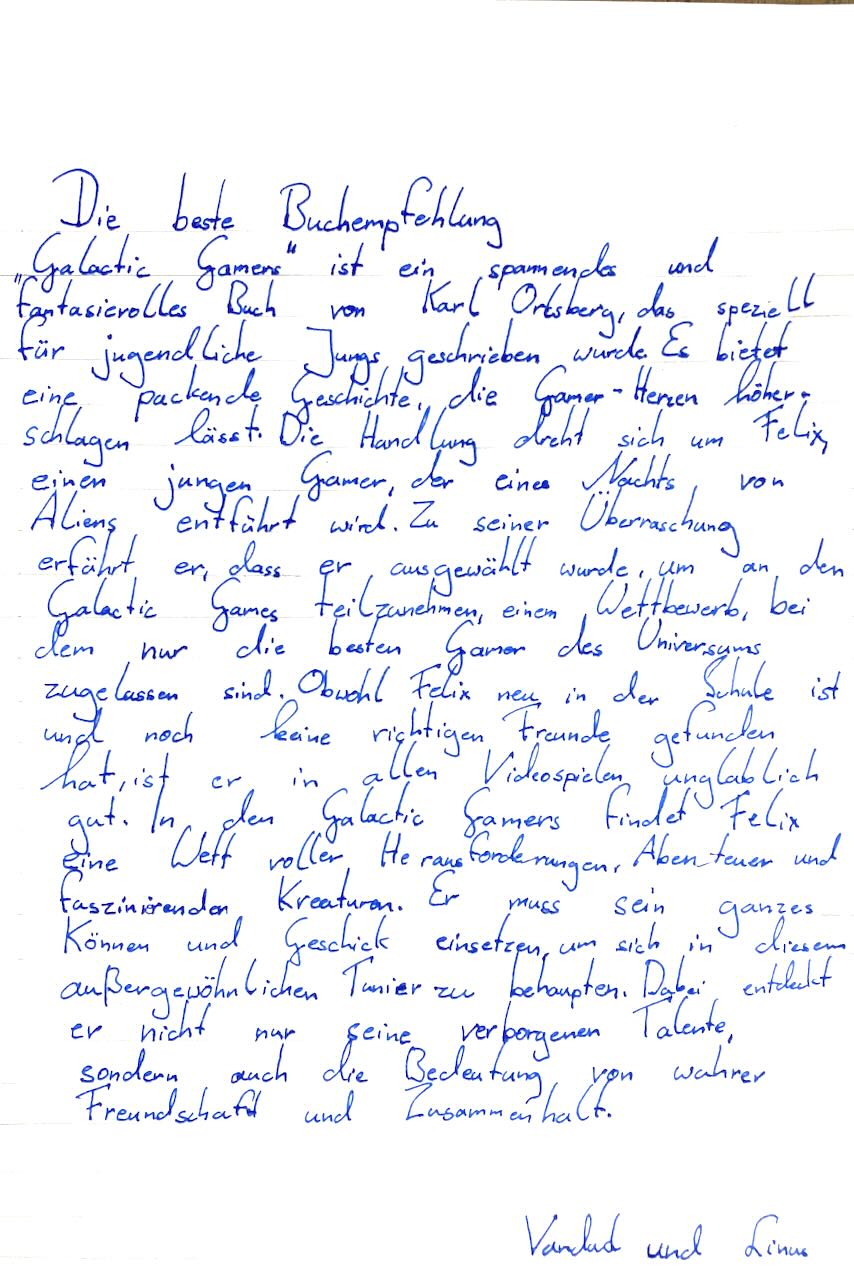 Die beste Buchempfehlung
„Galactic Gamers" ist ein spannendes und
fantasievolles Buch von Karl Ortsberg, das speziell
für jugendliche Jungs geschrieben wurde. Es bietet
eine packende Geschichte, die Gamer-Herzen höher-
schlagen lässt. Die Handlung dreht sich um Felix,
einen jungen Gamer, der eines Nachts, von
Aliens entführt wird. Zu seiner Überraschung
erfährt er, dass er ausgewählt wurde, um an den
Galactic Games teilzunehmen, einem Wettbewerb, bei
dem nur die besten Gamer des Universums
zugelassen sind. Obwohl Felix neu in der Schule ist
und noch keine richtigen Freunde gefunden
hat, ist er in allen Videospielen unglablich
gut. In den Galactic Gamers findet Felix
eine Welt voller Herausforderungen, Abenteuer und
faszinirenden Kreaturen. Er muss sein ganzes
Können und Geschick einsetzen, um sich in diesem
außergewöhnlichen Tunier zu behaupten. Dabei entdeckt
er nicht nur seine verborgenen Talente,
sondern auch die Bedeutung von wahrer
Freundschaft und Zusammenhalt.
und Linus